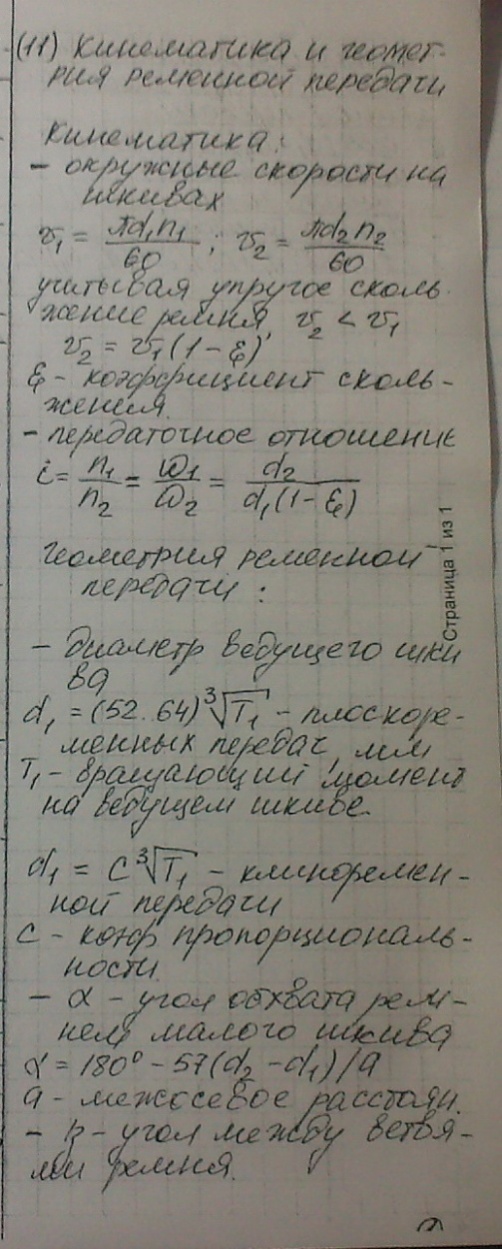 (11) Кинематика и геомет-
рия ременной передачи
Кинематика:
- окружные скорости на
шкивах
v₁ = πd₁n₁/60 ; v₂ = πd₂n₂/60
учитывая упругое сколь
жение ремня, v₂ < v₁
v₂ = v₁(1 - ξ)
ξ - коэффициент сколь-
жения.
- передаточное отношение
i = n₁/n₂ = ω₁/ω₂ = d₂/d₁(1 - ξ)
геометрия ременной
передачи :
- диаметр ведущего шки
ва
d₁ = (52..64)∛T₁ - плоскоре-
менных передач, мм
T₁ - вращающий момент
на ведущем шкиве.
d₁ = C∛T₁ - клиноремен-
ной передачи
C - коэф пропорциональ-
ности.
- α - угол обхвата рем-
нем малого шкива
α = 180° - 57(d₂ - d₁)/a
a - межосевое расстоян.
- β - угол между ветвя-
ми ремня.
Страница 1 из 1